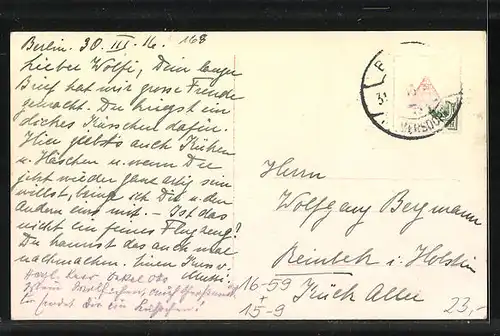 Berlin. 30. III. 16. 168
Lieber Wolfi, Dein langer
Brief hat mir grosse Freude
gemacht. Du kriegst ein
dickes Küsschen dafür.
Hier giebt's auch Küken
u. Häschen u. wenn Du
jetzt wieder ganz artig sein
willst, bring ich Dir u. den
Andern eins mit. – Ist das
nicht ein feines Flugzeug?
Du kannst das auch mal
nachmachen. Einen Kuss v.
Mutti.
Onkel Otto
Herrn
Wolfgang Bergmann
Reinbek i. Holstein
Küch Allee
16-59
+
15-9
23,-